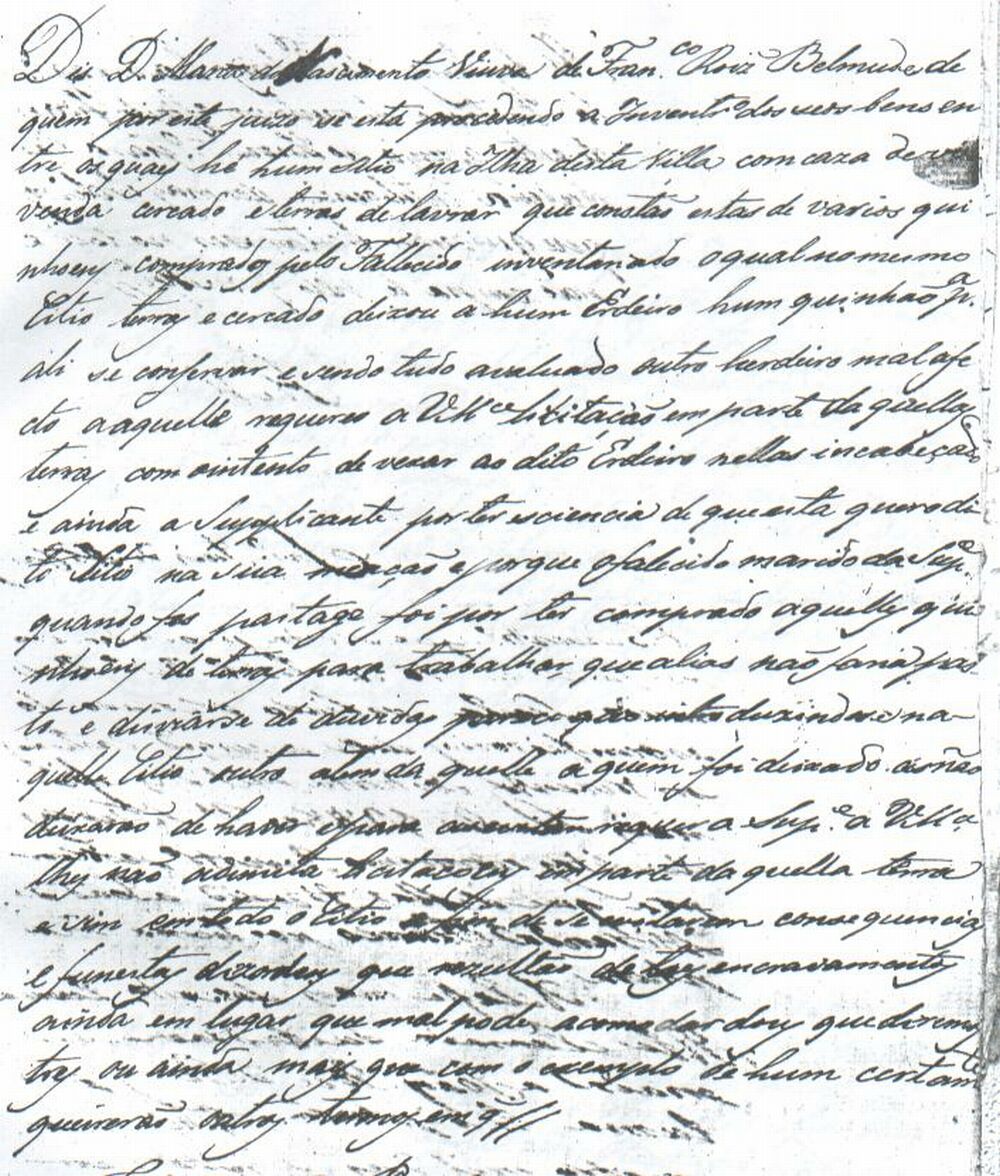 Dis D. Maria do Nascimento Viuva de Fran.co Roiz Belmude de
quem por este juizo se esta procedendo a Invent.o dos seos bens en
tre os quaes he hum sitio na Ilha desta Villa com caza de
venda cercado e terras de lavrar que constão estas de varios qui
nhoens comprados pelo Fallecido inventariado o qual no mesmo
Citio terras e cercado deixou a hum Erdeiro hum quinhão p.a
ali se conservar e sendo tudo avaluado outro herdeiro mal afe
cto a aquelle requereo a VM.ce licitação em parte daquellas
terras com o intento de vexar ao dito Erdeiro nellas incabeçado
e ainda a Supplicante por ter esciencia de que esta quer o di
to Sitio na sua meação e porque o falecido marido da Sup.e
quando fes partage foi por ter comprado aquelles qui
nhoens de terras para trabalhar, que alias não faria
to e duvidas dexindose na-
quelle Citio outro alem daquelle a quem foi deixado
deixarão de haver e para requer a Sup.e a VM.ce
lhes não admita licitaçoens em parte daquella terra
e sim em todo o Citio a fim de se evitarem consequencias
e funestas dizordens que rezultão de taes encravamentos
ainda em lugar que mal pode acomodar dous quediremos
tres ou ainda mais que com o exemplo de hum certam.te
queirerão outros termos em q //